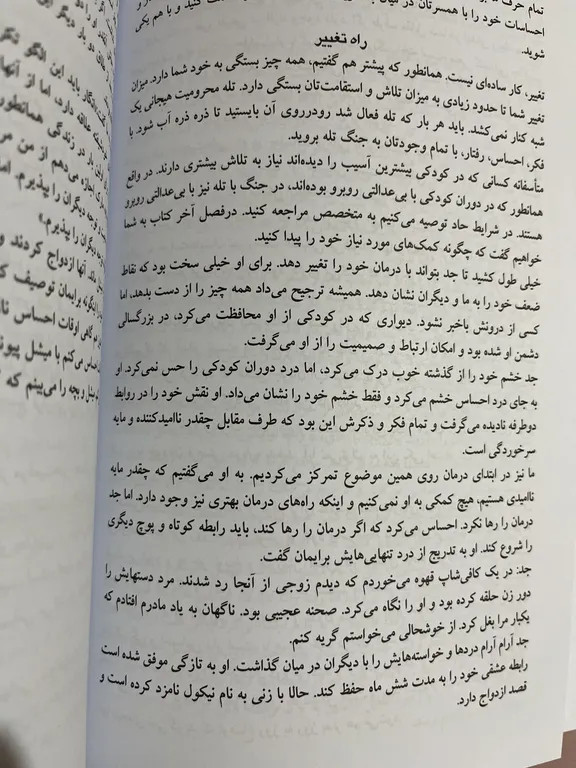 تمام حرف
احساسات خود را با همسرتان در میان کنید و با هم یکی
شوید.
راه تغییر
تغییر، کار ساده‌ای نیست. همانطور که پیشتر هم گفتیم، همه چیز بستگی به خود شما دارد. میزان
تغییر شما تا حدود زیادی به میزان تلاش و استقامت‌تان بستگی دارد. تله محرومیت هیجانی یک
شبه کنار نمی‌کشد. باید هر بار که تله فعال شد رودرروی آن بایستید تا ذره ذره آب شود. با
فکر، احساس، رفتار، با تمام وجودتان به جنگ تله بروید.
متأسفانه کسانی که در کودکی بیشترین آسیب را دیده‌اند نیاز به تلاش بیشتری دارند. در واقع
همانطور که در دوران کودکی با بی‌عدالتی روبرو بوده‌اند، در جنگ با تله نیز با بی‌عدالتی روبرو
هستند. در شرایط حاد توصیه می‌کنیم به متخصص مراجعه کنید. درفصل آخر کتاب به شما
خواهیم گفت که چگونه کمک‌های مورد نیاز خود را پیدا کنید.
خیلی طول کشید تا جد بتواند با درمان خود را تغییر دهد. برای او خیلی سخت بود که نقاط
ضعف خود را به ما و دیگران نشان دهد. همیشه ترجیح می‌داد همه چیز را از دست بدهد، اما
کسی از درونش باخبر نشود. دیواری که در کودکی از او محافظت می‌کرد، در بزرگسالی
دشمن او شده بود و امکان ارتباط و صمیمیت را از او می‌گرفت.
جد خشم خود را از گذشته خوب درک می‌کرد، اما درد دوران کودکی را حس نمی‌کرد. او
به جای درد احساس خشم می‌کرد و فقط خشم خود را نشان می‌داد. او نقش خود را در روابط
دوطرفه نادیده می‌گرفت و تمام فکر و ذکرش این بود که طرف مقابل چقدر ناامیدکننده و مایه
سرخوردگی است.
ما نیز در ابتدای درمان روی همین موضوع تمرکز می‌کردیم. به او می‌گفتیم که چقدر مایه
ناامیدی هستیم، هیچ کمکی به او نمی‌کنیم و اینکه راه‌های درمان بهتری نیز وجود دارد. اما جد
درمان را رها نکرد. احساس می‌کرد که اگر درمان را رها کند، باید رابطه کوتاه و پوچ دیگری
را شروع کند. او به تدریج از درد تنهایی‌هایش برایمان گفت.
جد: در یک کافی‌شاپ قهوه می‌خوردم که دیدم زوجی از آنجا رد شدند. مرد دستهایش را
دور زن حلقه کرده بود و او را نگاه می‌کرد. صحنه عجیبی بود. ناگهان به یاد مادرم افتادم که
یکبار مرا بغل کرد. از خوشحالی می‌خواستم گریه کنم.
جد آرام آرام دردها و خواسته‌هایش را با دیگران در میان گذاشت. او به تازگی موفق شده است
رابطه عشقی خود را به مدت شش ماه حفظ کند. حالا با زنی به نام نیکول نامزد کرده است و
قصد ازدواج دارد.